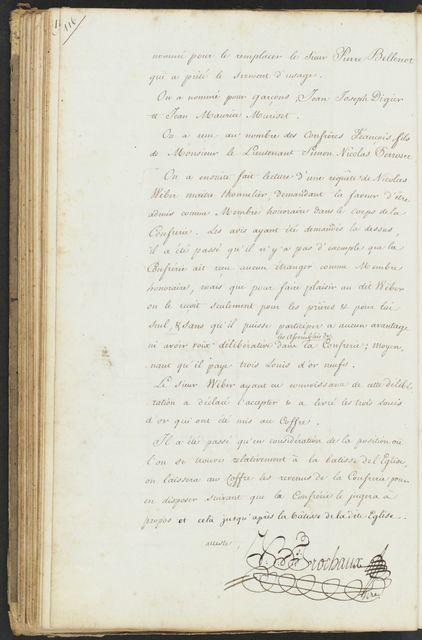 116
nommé pour le remplacer le Sieur Pierre Bellenot
qui a prêté le serment d'usage.
On a nommé pour garçons, Jean Joseph Digier
et Jean Maurice Muriset.
On a reçu au nombre des Confrères François, fils
de Monsieur le Lieutenant Simon Nicolas Perroset
On a ensuite fait lecture d'une requête de Nicolas
Wiber maitre thonnelier, demandant la faveur d'être
admis comme Membre honoraire dans le corps de la
Confrérie. Les avis ayant été demandés la dessus,
il a été passé qu'il n'y a pas d'exemple que la
Confrérie ait reçu aucun étranger comme Membre
honoraire, mais que pour faire plaisir au dit Wiber
on le reçoit seulement pour les prières & pour lui
seul, & sans qu'il puisse participer a aucun avantage
ni avoir voix délibérative dans les assemblées de la Confrérie; moyen
nant qu'il paye trois Louis d'or neufs.
Le d. Sieur Wiber ayant eu connoissance de cette délibé-
ration a déclaré l'accepter & a livré les trois Louis
d'or qui ont été mis au Coffre.
Il a été passé qu'en considération de la position où
l'on se trouve relativement à la batisse de l'Eglise,
on laissera au Coffre les revenus de la Confrérie pour
en disposer suivant que la Confrérie le jugera à
propos et cela jusqu'après la bâtisse de la dite Eglise.
atteste
Frochaux